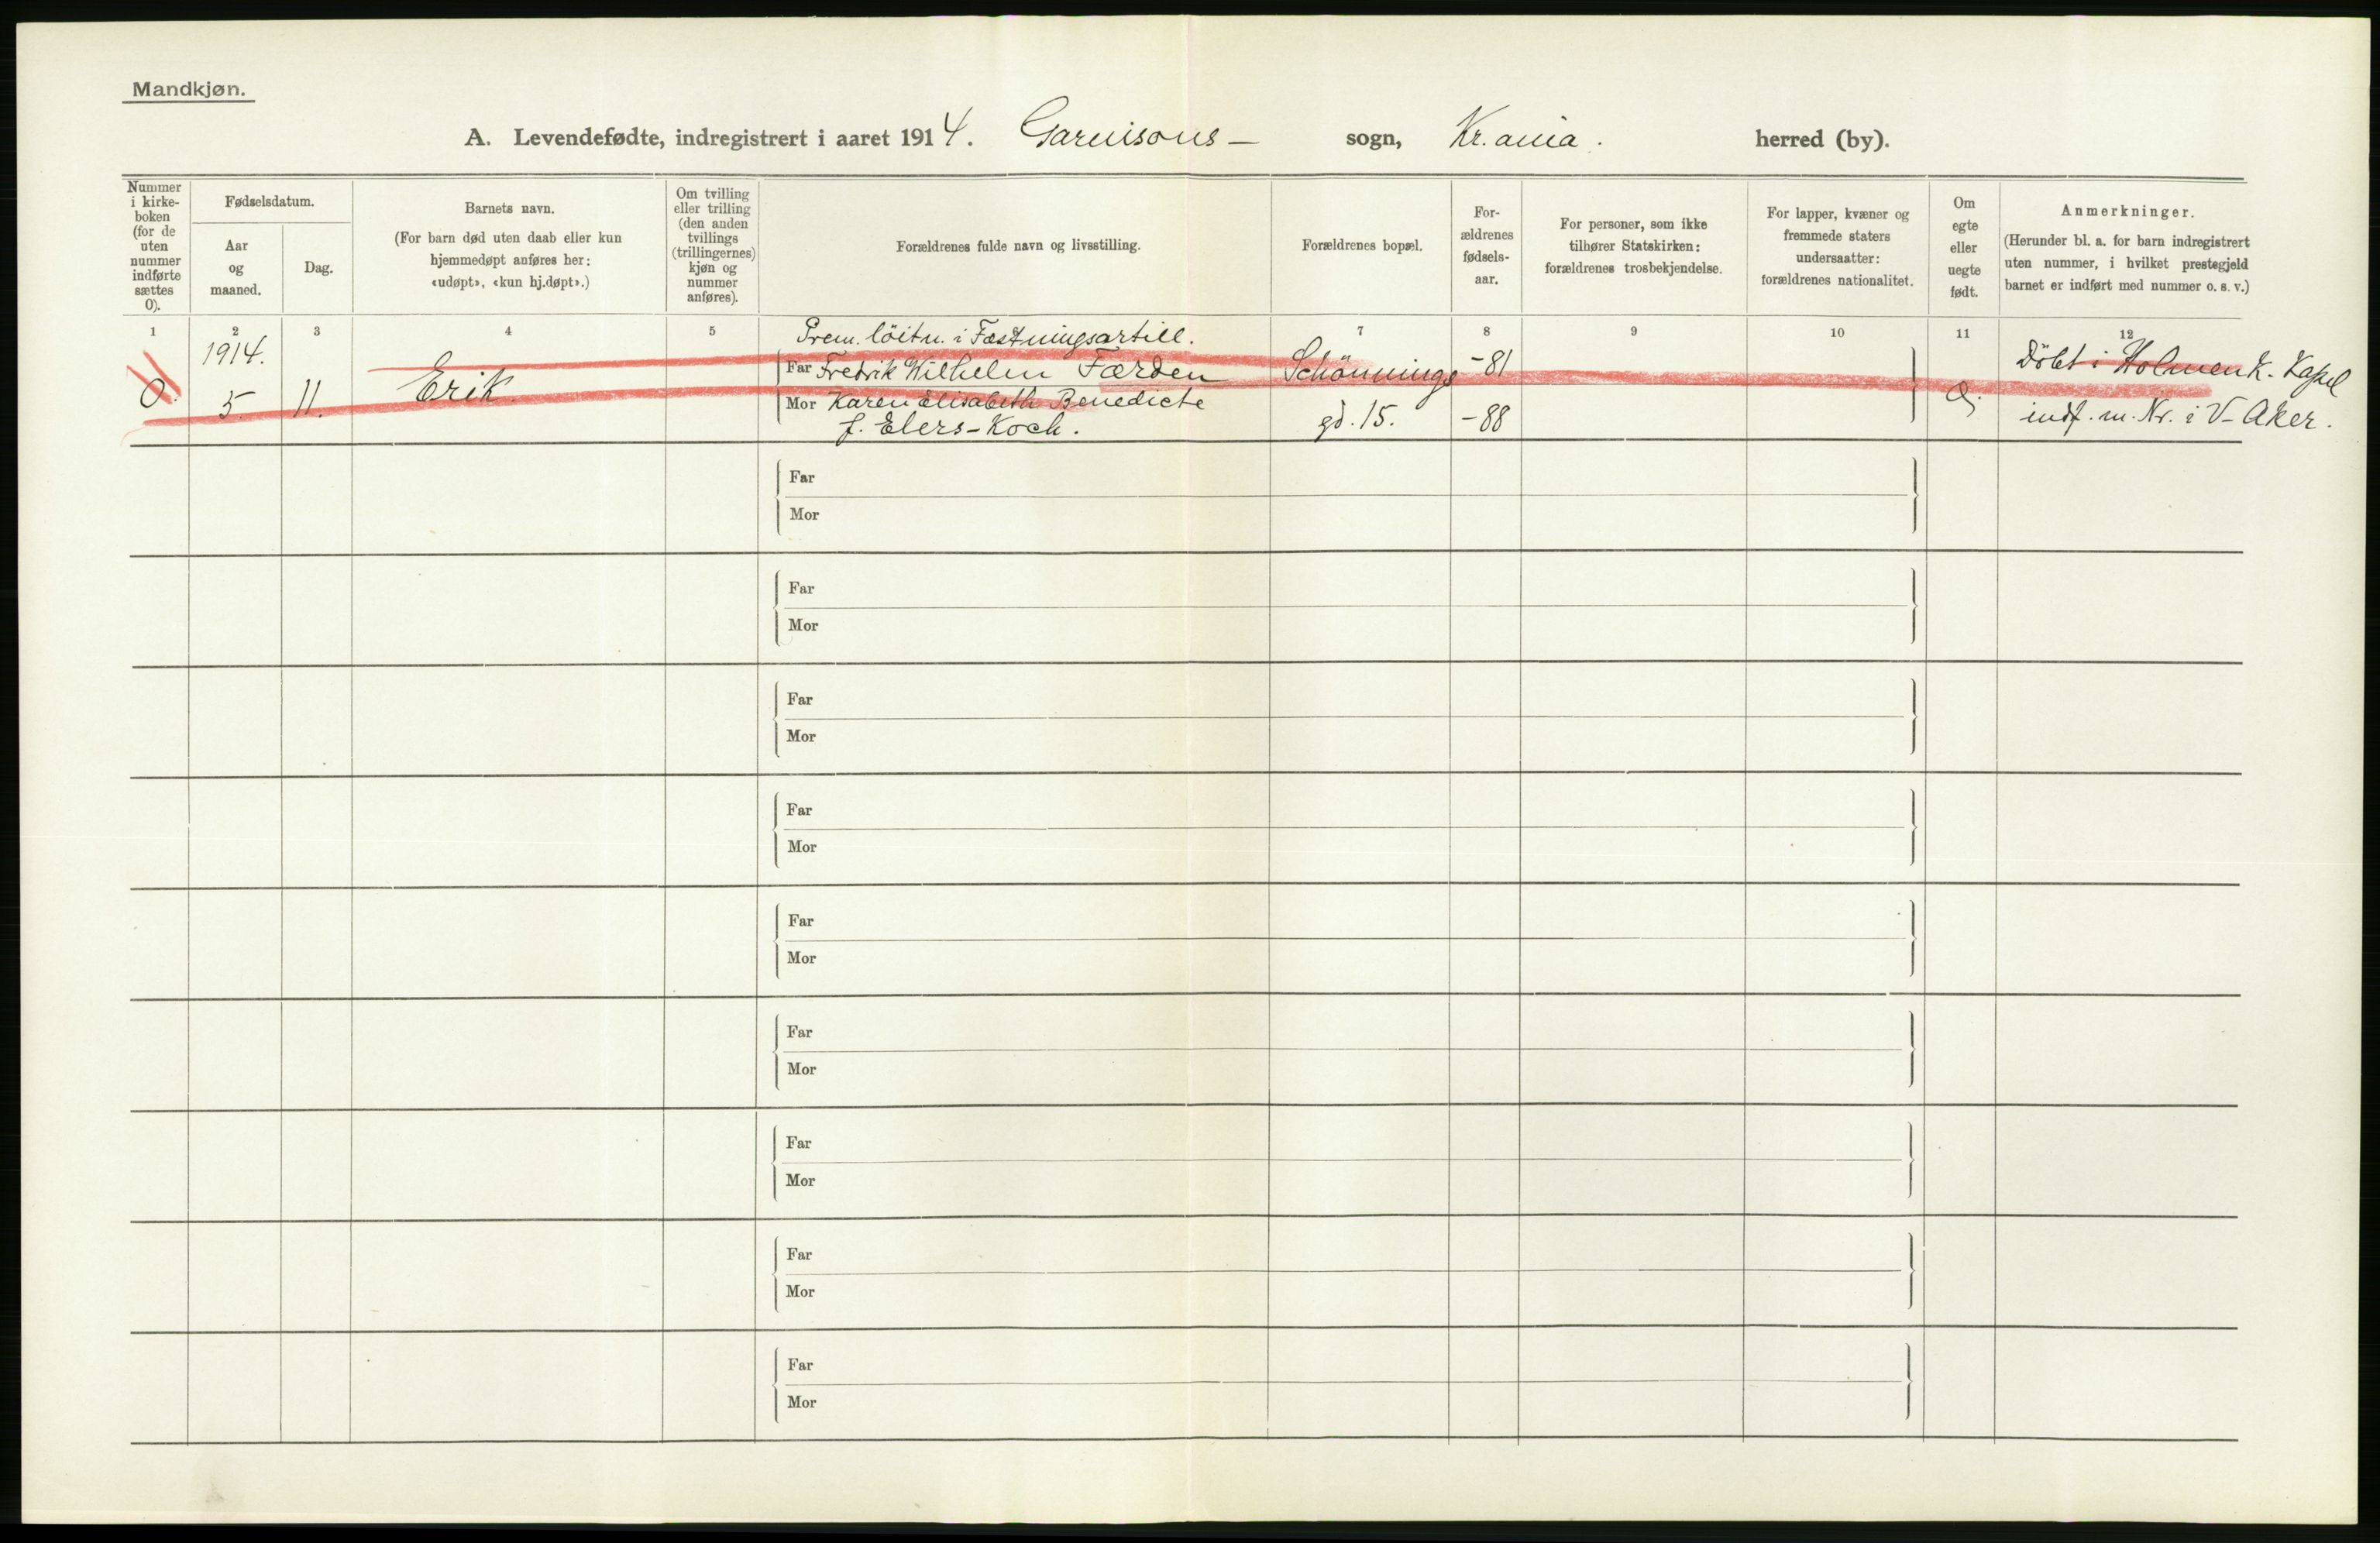 Mandkjøn.
A. Levendefødte, indregistrert i aaret 1914. Garnisons- sogn, Kr.ania. herred (by).
Nummer
i kirke-
boken
(for de
uten
nummer
indførte
sættes
0).
Fødselsdatum.
Aar
og
maaned.
Dag.
Barnets navn.
(For barn død uten daab eller kun
hjemmedøpt anføres her:
«udøpt», «kun hj.døpt».)
Om tvilling
eller trilling
(den anden
tvillings
(trillingernes)
kjøn og
nummer
anføres).
Forældrenes fulde navn og livsstilling.
Forældrenes bopæl.
For-
ældrenes
fødsels-
aar.
For personer, som ikke
tilhører Statskirken:
forældrenes trosbekjendelse.
For lapper, kvæner og
fremmede staters
undersaatter:
forældrenes nationalitet.
Om
egte
eller
uegte
født.
Anmerkninger.
(Herunder bl. a. for barn indregistrert
uten nummer, i hvilket prestegjeld
barnet er indført med nummer o. s. v.)
1 2 3 4 5 7 8 9 10 11 12
0.
1914.
5. 11.
Erik.
Prem. löitn. i Fæstningsartill.
Far Fredrik Wilhelm Færden
Mor Karen Elisabeth Benedicte
f. Elers-Koch.
Schönnings
gd. 15.
-81
-88
Döbt i Holmenk. Kapel
indf. m. Nr. i V-Aker.
Far
Mor
Far
Mor
Far
Mor
Far
Mor
Far
Mor
Far
Mor
Far
Mor
Far
Mor
Far
Mor